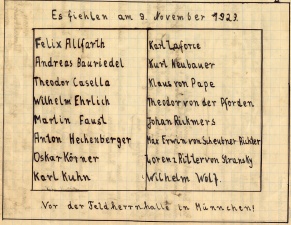 Es fiehlen am 9. November 1923.
Felix Allfarth
Andreas Bauriedel
Theodor Casella
Wilhelm Ehrlich
Martin Faust
Anton Hechenberger
Oskar Körner
Karl Kuhn
Karl Laforce
Kurt Neubauer
Klaus von Pape
Theodor von der Pfordten
Johan Rickmers
Max Erwin von Scheubner Richter
Lorenz Ritter von Stransky
Wilhelm Wolf.
Vor der Feldherrnhalle in Münnchen!